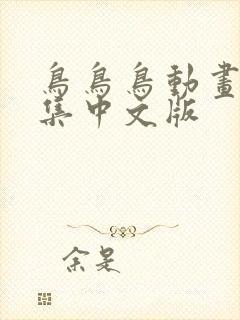 鳥鳥鳥動畫
集中文版
余是